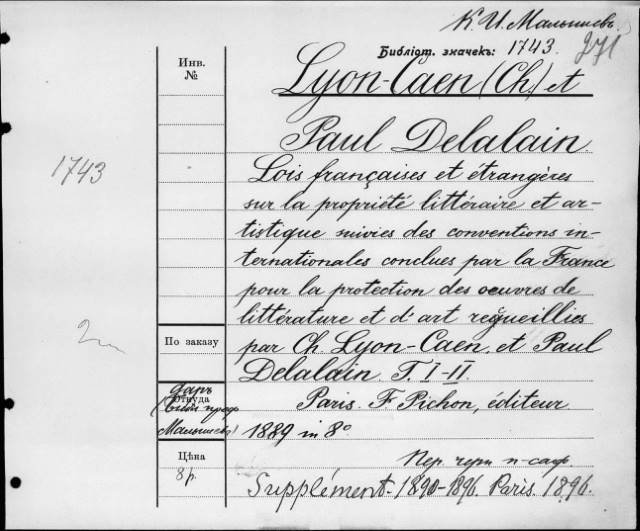 К. И. Малышевъ
Библіот. значекъ: 1743.
271
Инв.
№
Lyon-Caen (Ch.) et
Paul Delalain
1743
Lois françaises et étrangères
sur la propriété littéraire et ar-
tistique suivies des conventions in-
ternationales conclues par la France
pour la protection des oeuvres de
littérature et d'art reçueillies
По заказу
par Ch. Lyon-Caen et Paul
Delalain. T. I-II.
даръ
Откуда
Малышева)
Paris. F. Pichon, éditeur.
1889 in 8°
Цѣна
8 р.
Пер. черн.
Supplément-1890-1896. Paris. 1896.